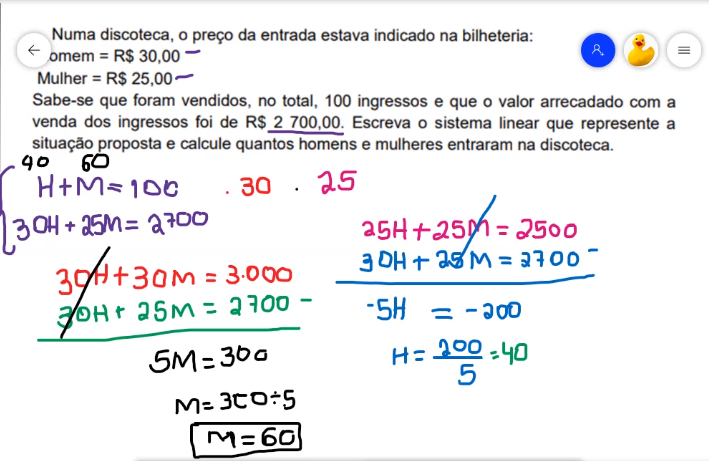 Numa discoteca, o preço da entrada estava indicado na bilheteria:
omem = R$ 30,00
Mulher = R$ 25,00
Sabe-se que foram vendidos, no total, 100 ingressos e que o valor arrecadado com a
venda dos ingressos foi de R$ 2 700,00. Escreva o sistema linear que represente a
situação proposta e calcule quantos homens e mulheres entraram na discoteca.
40 60
H+M=100 . 30 . 25
30H+25M=2700
30H+30M=3.000
30H+25M=2700 -
5M=300
M=300÷5
M=60
25H+25M=2500
30H+25M=2700 -
-5H = -200
H=200/5=40